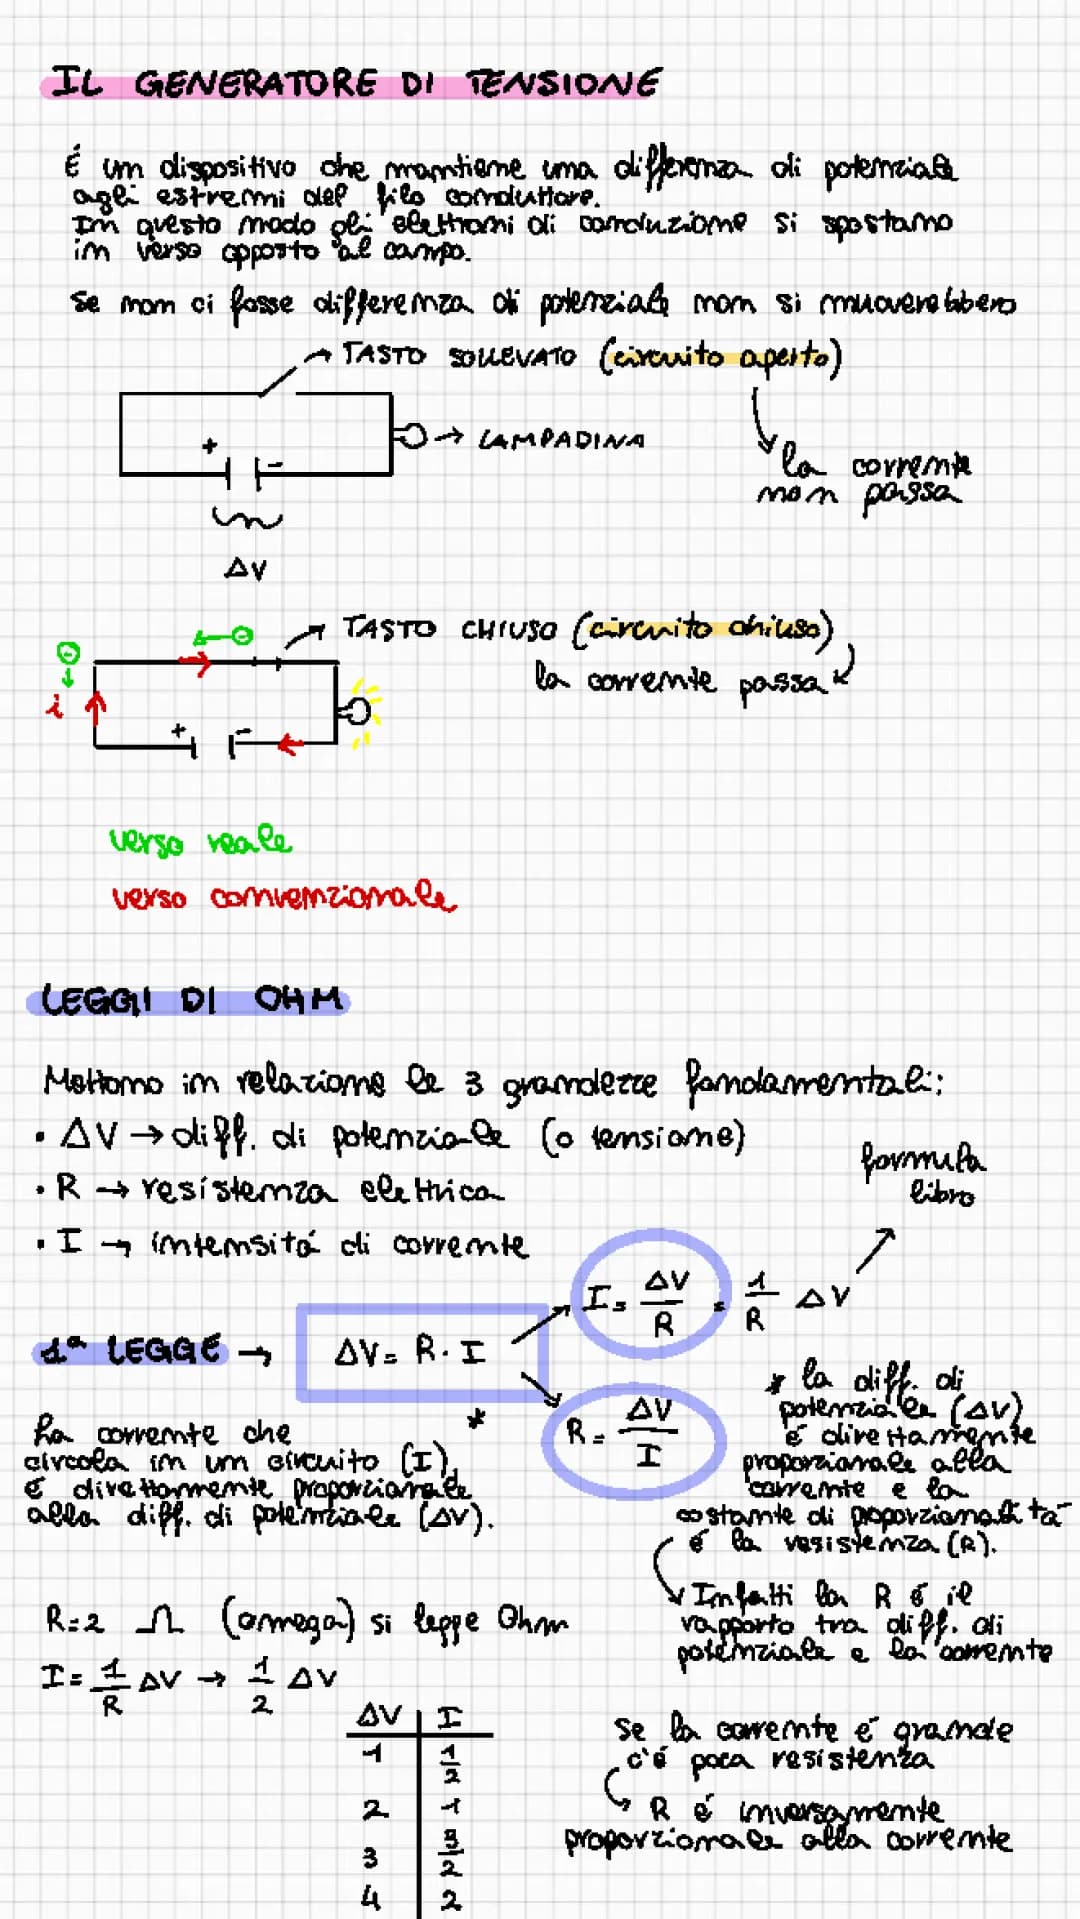 IL GENERATORE DI TENSIONE
É un dispositivo che mantiene una differenza di potenziale
agli estremi del filo conduttore.
In questo modo gli elettroni di conduzione si spostano
in verso opposto al campo.
Se non ci fosse differenza di potenziale non si muoverebbero
→ TASTO SOLLEVATO (circuito aperto)
+ -
→ LAMPADINA
la corrente
non passa
ΔV
→ TASTO CHIUSO (circuito chiuso)
la corrente passa
i
+ -
verso reale
verso convenzionale
LEGGI DI OHM
Mettono in relazione le 3 grandezze fondamentali:
• ΔV → diff. di potenziale (o tensione)
• R → resistenza elettrica
• I → intensitá di corrente
formula
libro
I = ΔV/R = 1/R ΔV
1ª LEGGE → ΔV = R · I
*
R = ΔV/I
La corrente che
circola in un circuito (I)
é direttamente proporzionale
alla diff. di potenziale (ΔV).
* la diff. di
potenziale (ΔV)
é direttamente
proporzionale alla
corrente e la
costante di proporzionalitá
é la resistenza (R).
Infatti la R é il
rapporto tra diff. di
potenziale e la corrente
R=2 Ω (omega) si legge Ohm
I = 1/R ΔV → 1/2 ΔV
ΔV | I
1 | 1/2
2 | 1
3 | 3/2
4 | 2
Se la corrente é grande
c'é poca resistenza
R é inversamente
proporzionale alla corrente